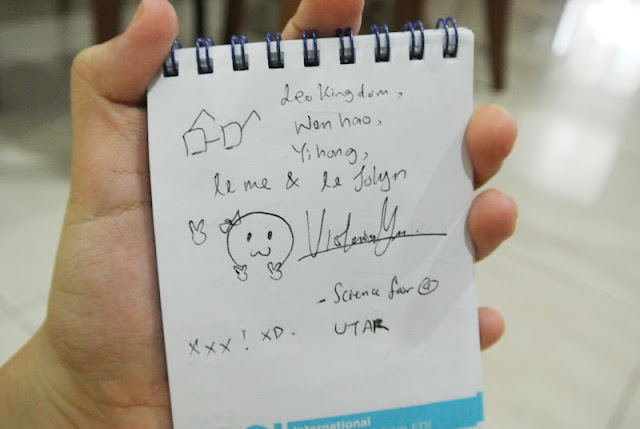 Leo Kingdom,
Wen hao,
Yi hong,
le me & le Jolyn
- Science fair @
UTAR
xxx! XD.
International